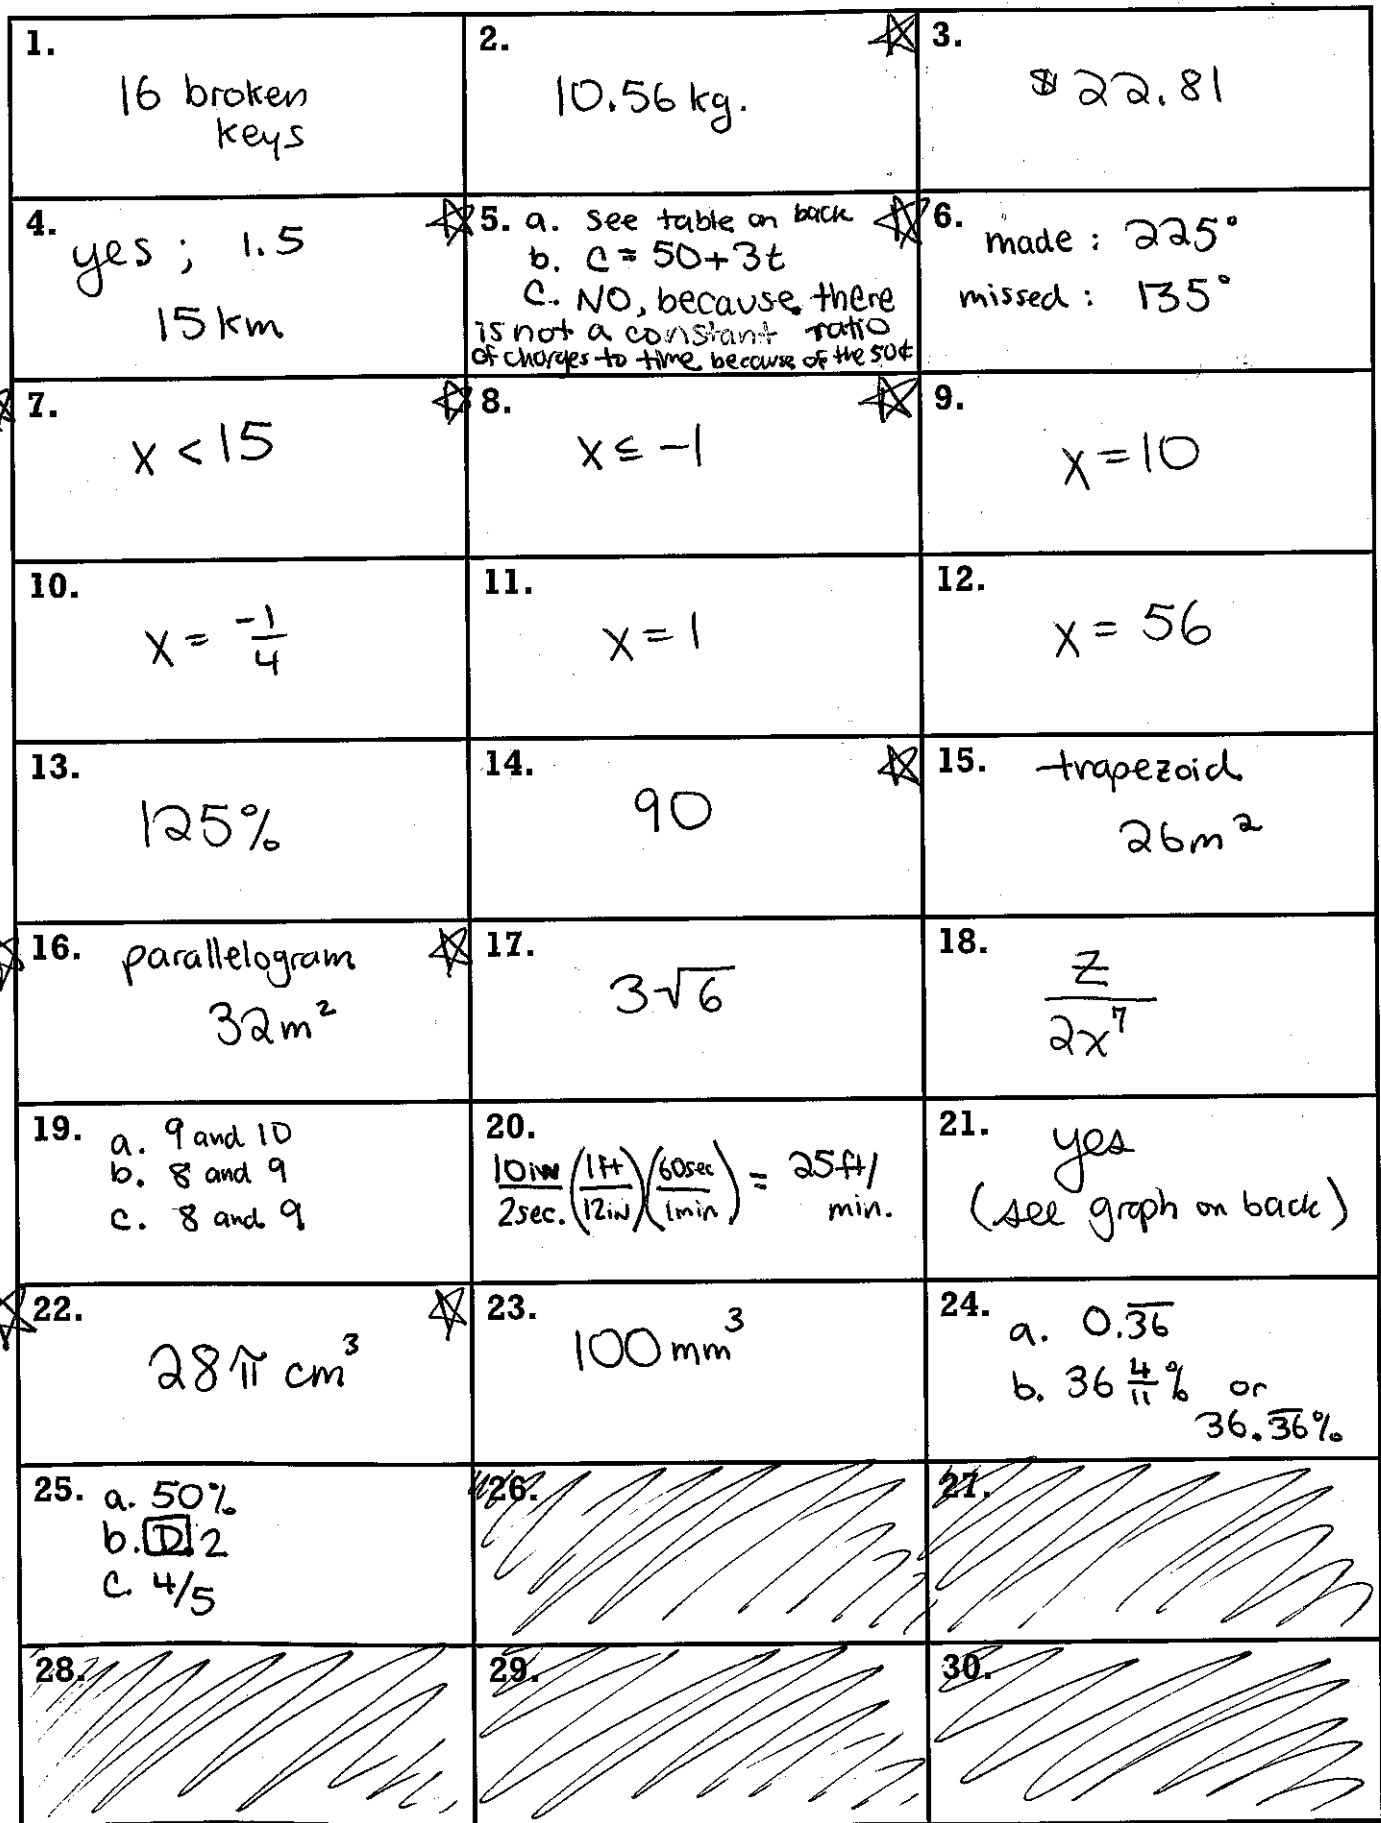 1.
16 broken
keys
2.
10.56 kg.
3.
$22.81
4.
yes ; 1.5
15 km
5. a. see table on back
b. C = 50+3t
C. NO, because there
is not a constant ratio
of charges to time because of the 50¢
6.
made : 225°
missed : 135°
7.
x < 15
8.
x ≤ -1
9.
x = 10
10.
x = -1/4
11.
x = 1
12.
x = 56
13.
125%
14.
90
15. trapezoid
26m²
16. parallelogram
32m²
17.
3√6
18.
z/2x⁷
19. a. 9 and 10
b. 8 and 9
c. 8 and 9
20.
10in/2sec. (1ft/12in)(60sec/1min) = 25ft/
min.
21.
yes
(see graph on back)
22.
28π cm³
23.
100 mm³
24. a. 0.3̅6̅
b. 36 4/11 % or
36.3̅6̅%
25. a. 50%
b. D. 2
C. 4/5
26.
27.
28.
29.
30.